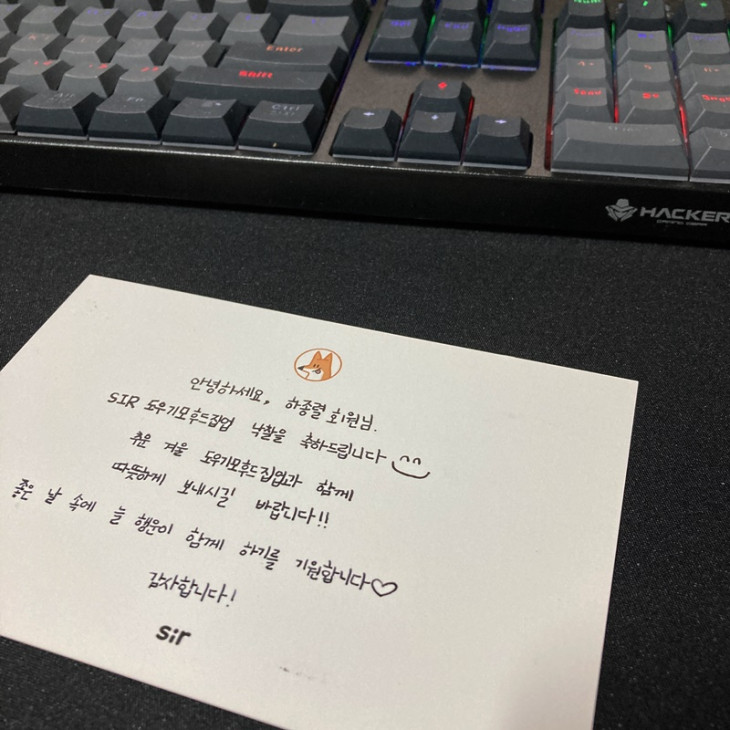 Enter
Shift
Fn
Ctrl
HACKER
안녕하세요, 하종렬 회원님.
SIR 도우기모후드집업 낙찰을 축하드립니다
추운 겨울 도우기모후드집업과 함께
따뜻하게 보내시길 바랍니다!!
좋은 날 속에 늘 행운이 함께 하기를 기원합니다♡
감사합니다!
sir